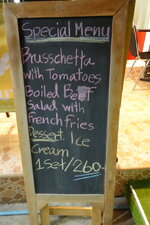 Special Menu
Brusschetta
with Tomatoes
Boiled Beef
Salad with
French fries
Dessert. Ice
Cream
1 Set/260.-